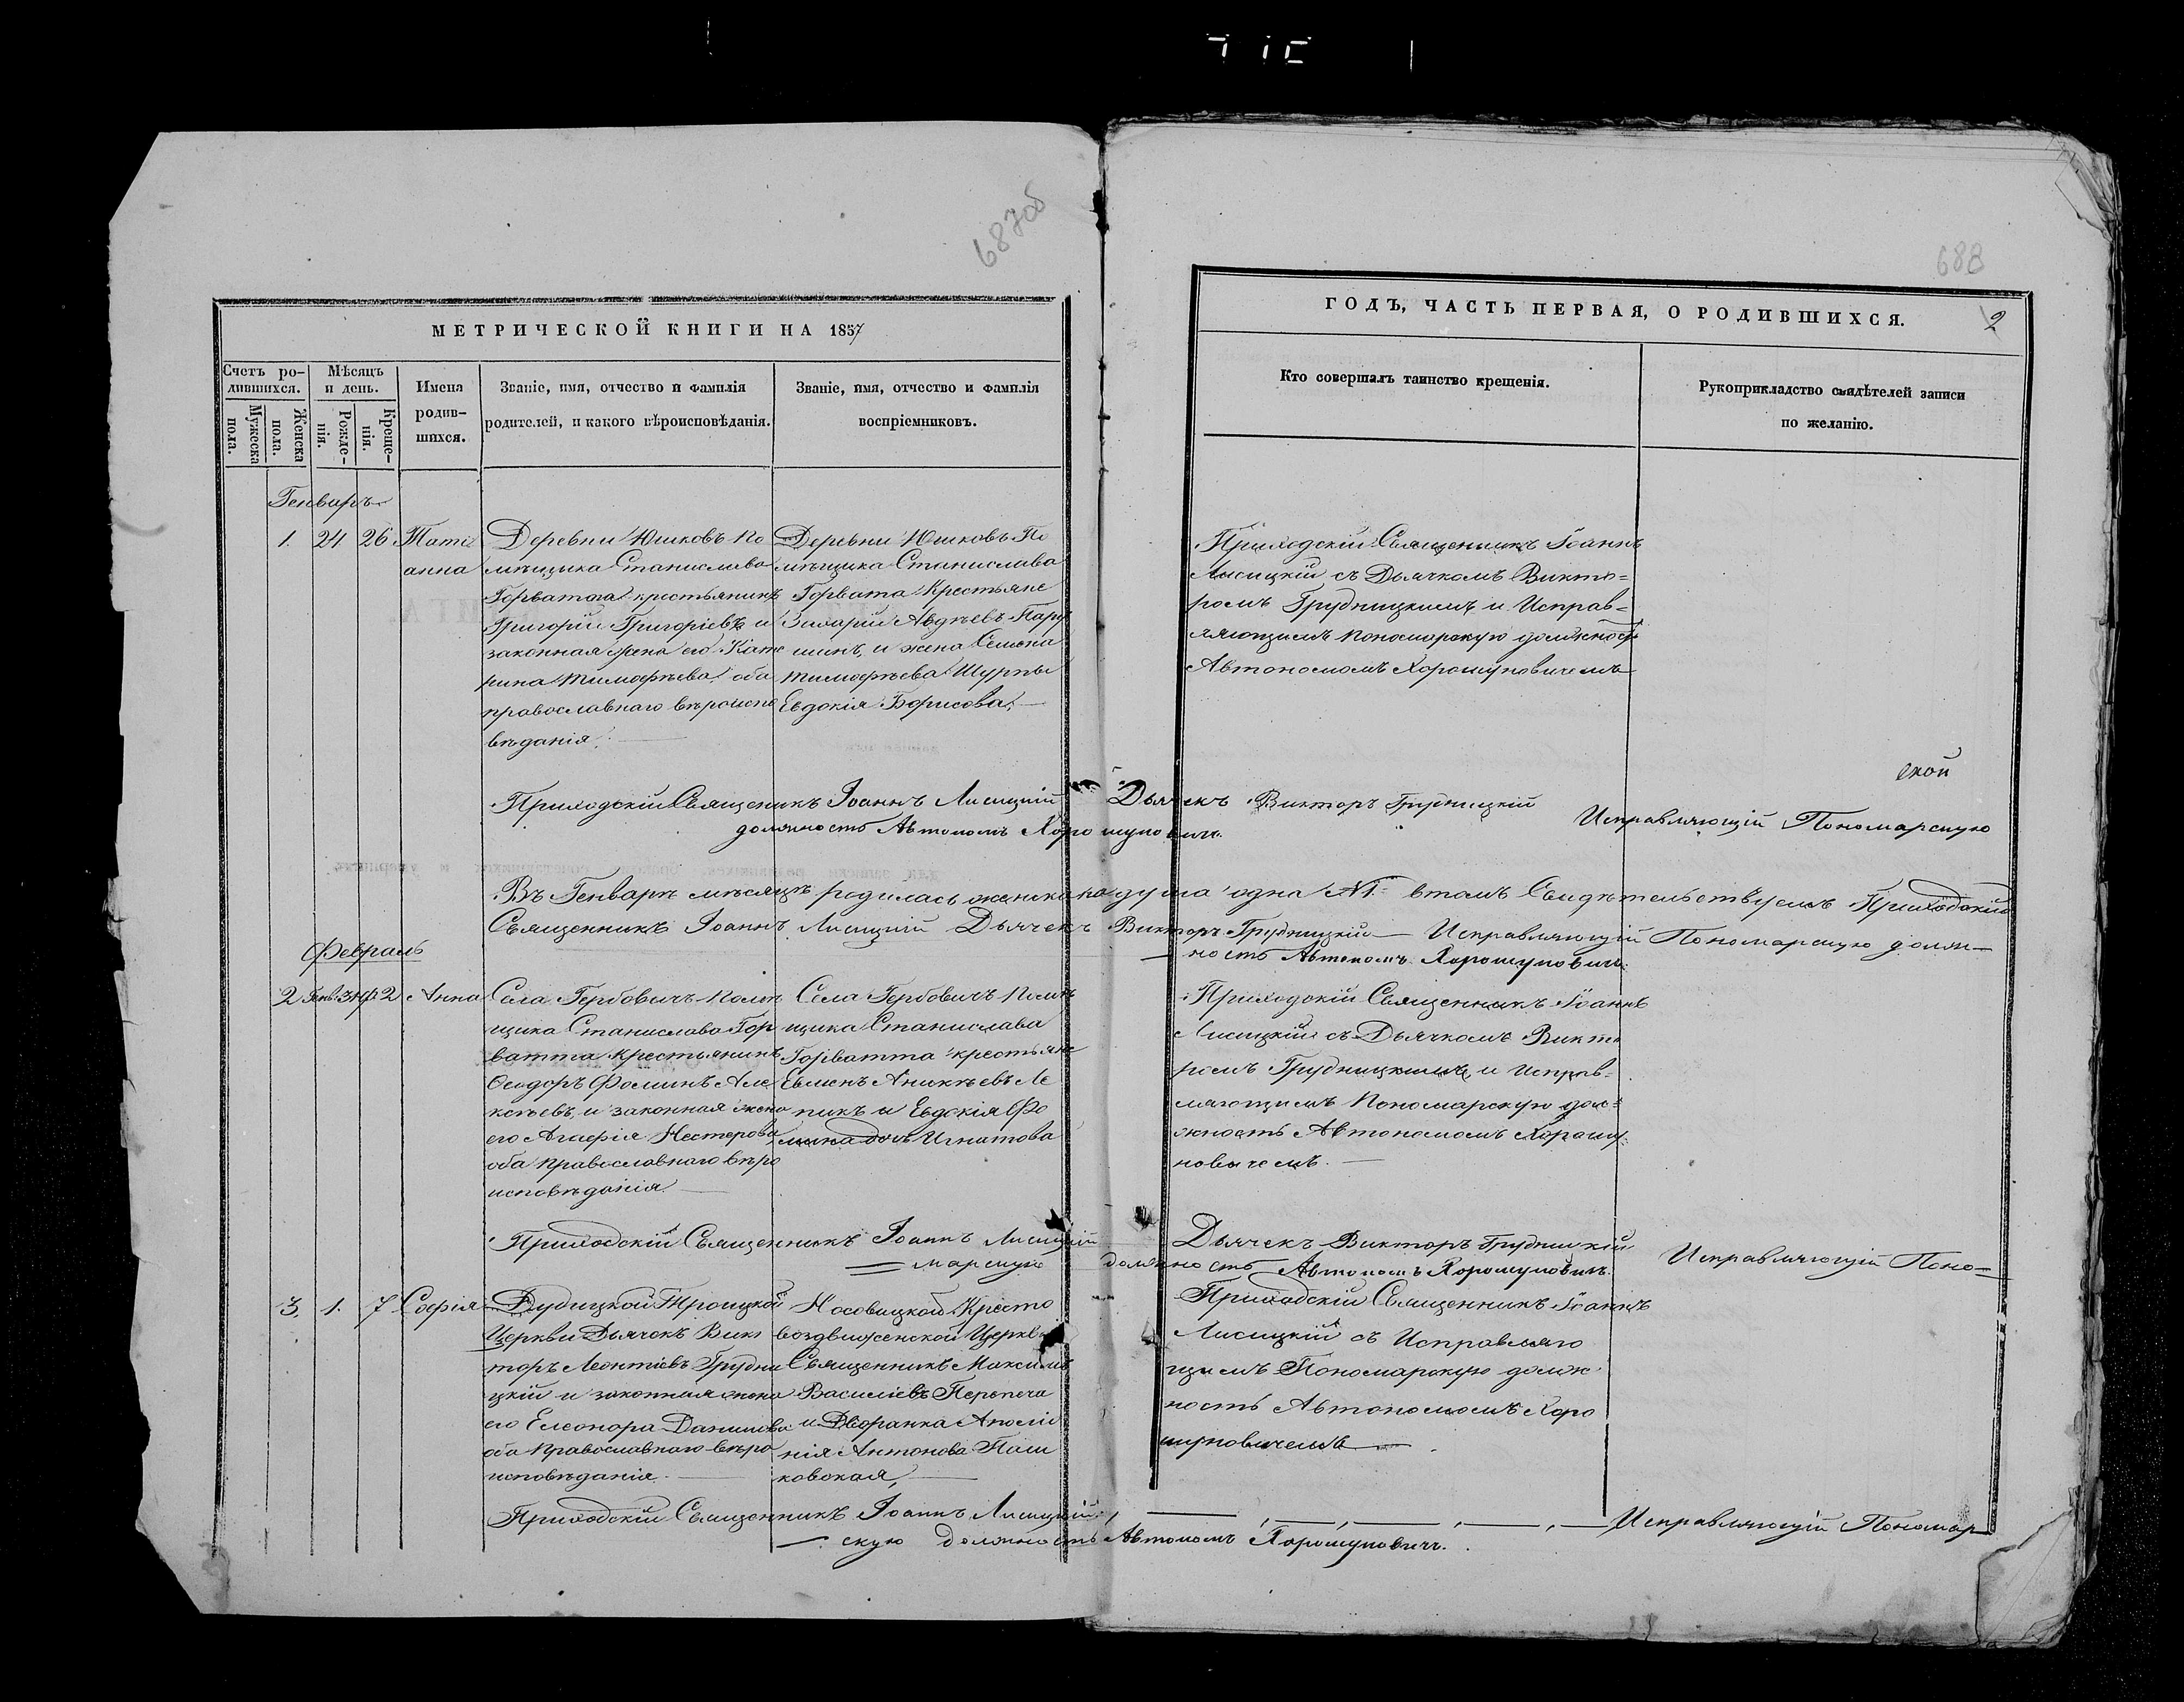 687об
688
МЕТРИЧЕСКОЙ КНИГИ НА 1857
ГОДЪ, ЧАСТЬ ПЕРВАЯ, О РОДИВШИХСЯ.
2
Счетъ ро-
дившихся.
Мужеска
пола.
Женска
пола.
Мѣсяцъ
и день.
Рожде-
нія.
Креще-
нія.
Имена
родив-
шихся.
Званіе, имя, отчество и фамилія
родителей, и какого вѣроисповѣданія.
Званіе, имя, отчество и фамилія
воспріемниковъ.
Кто совершалъ таинство крещенія.
Рукоприкладство свидѣтелей записи
по желанію.
Генварь
1. 24 26 Таті
анна
Деревни Юшковъ по
мѣщика Станислава
Горватта крестьянинъ
Григорій Григоріевъ и
законная жена его Кате
рина Тимофѣева оба
православнаго вѣроиспо
вѣданія.
Деревни Юшковъ По
мѣщика Станислава
Горвата Крестьяне
Захарій Авдѣевъ
и жена Семена
Тимофѣева
Евдокія Борисова.
Приходскій Священникъ Іоаннъ
Лисицкій съ Дьячкомъ Викто=
ромъ Грудницкимъ и Исправ=
ляющимъ пономарскую должность
Автономомъ Хорошуновичемъ
Приходскій Священикъ Іоаннъ Лисицкій Дьячекъ Викторъ Грудницкій Исправляющій Пономарскую
должность Автономъ Хорошуновичъ.
Въ Генварѣ мѣсяцѣ родилась женска пола душа одна №1. въ томъ Свидѣтельствуемъ Приходскій
Священникъ Іоаннъ Лисицкій Дьячекъ Викторъ Грудницкій Исправляющій Пономарскую долж-
ность Автономъ Хорошуновичъ.
Февраль
2 Генв. 31 ф. 2 Анна
Села Гербовичъ помѣ
щика Станислава Гор
ватта крестьянинъ
Ѳеодоръ Фоминъ Але
ксѣевъ и законная жена
его Агафія Нестерова
оба православнаго вѣро
исповѣданія
Села Гербовичъ помѣ
щика Станислава
Горватта крестьяне
Евменъ Аникѣевъ Ле
никъ и Евдокія Фо
мина дочь Игнатова
Приходскій Священникъ Іоаннъ
Лисицкій съ Дьячкомъ Викто
ромъ Грудницкимъ и Исправ=
ляющимъ Пономарскую дол=
жность Автономомъ Хорошу
новичемъ.
Приходскій Священникъ Іоаннъ Лисицкій Дьячекъ Викторъ Грудницкій Исправляющій Поно-
марскую должность Автономъ Хорошуновичъ.
3. 1. 7 Софія
Дубицкой Троицкой
Церкви Дьячекъ Вик
торъ Леонтіевъ Грудни
цкій и законная жена
его Елеонора Данилова
оба Православнаго вѣро
исповѣданія.
Носовицкой Кресто
воздвиженской Церкви
Священникъ Максимъ
Василіевъ Перепеча
и Дворянка Аполло
нія Антонова
ковская,
Приходскій Священникъ Іоаннъ
Лисицкій съ Исправляю
щимъ Пономарскую долж
ность Автономомъ Хоро
шуновичемъ
Приходскій Священникъ Іоаннъ Лисицкій, Исправляющій Пономар
скую должность Автономъ Хорошуновичъ.